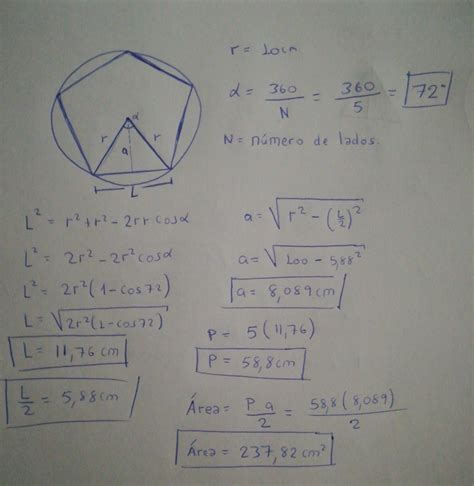 r = 10cm
α = 360/N = 360/5 = 72°
N = número de lados.
α
r
r
a
L
L² = r²+r² - 2rr cosα
L² = 2r² - 2r² cosα
L² = 2r² (1 - cos72)
L = √2r²(1-cos72)
L = 11,76 cm
L/2 = 5,88cm
a = √r² - (L/2)²
a = √100 - 5,88²
a = 8,089cm
P = 5 (11,76)
P = 58,8 cm
Área = P a/2 = 58,8 (8,089)/2
Área = 237,82 cm²